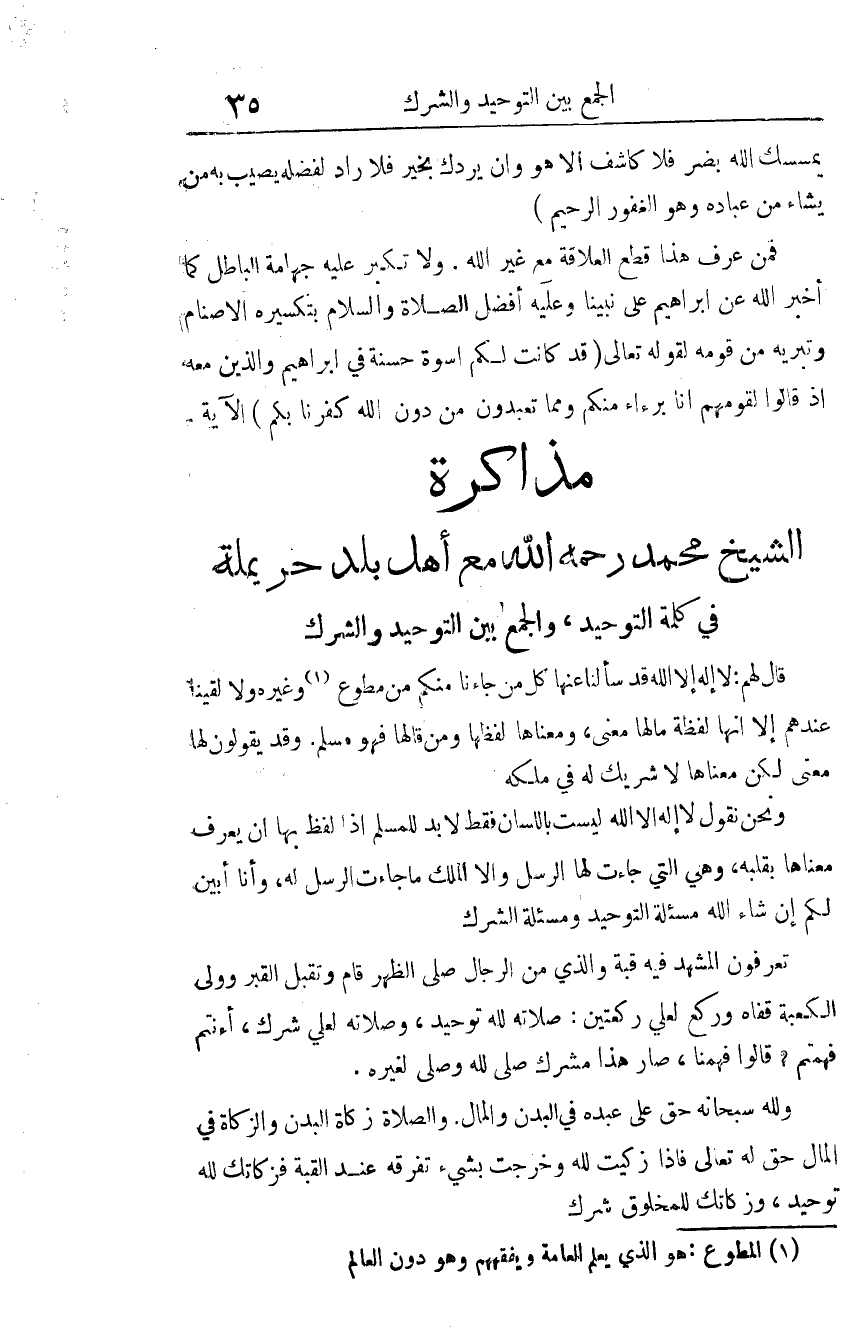 الجمع بين التوحيد والشرك ٣٥
يمسسك الله بضر فلا كاشف الا هو وان يردك بخير فلا راد لفضله يصيب به من
يشاء من عباده وهو الغفور الرحيم )
فمن عرف هذا قطع العلاقة مع غير الله . ولا تكبر عليه جهامة الباطل كما
أخبر الله عن ابراهيم على نبينا وعليه أفضل الصلاة والسلام بتكسيره الاصنام
وتبريه من قومه لقوله تعالى ( قد كانت لكم اسوة حسنة في ابراهيم والذين معه
اذ قالوا لقومهم انا برءاء منكم ومما تعبدون من دون الله كفرنا بكم ) الآية .
مذاكرة
الشيخ محمد رحمه الله مع أهل بلد حريملة
في كلمة التوحيد ، والجمع بين التوحيد والشرك
قال لهم : لا إله إلا الله قد سألنا عنها كل من جاءنا منكم من مطوع (١) وغيره ولا لقينا
عندهم إلا انها لفظة مالها معنى ، ومعناها لفظها ومن قالها فهو مسلم . وقد يقولون لها
معنى لكن معناها لا شريك له في ملكه
ونحن نقول لا إله الا الله ليست باللسان فقط لا بد للمسلم اذا لفظ بها ان يعرف
معناها بقلبه ، وهي التي جاءت لها الرسل والا الملك ما جاءت الرسل له ، وأنا أبين
لكم إن شاء الله مسئلة التوحيد ومسئلة الشرك
تعرفون المشهد فيه قبة والذي من الرجال صلى الظهر قام وتقبل القبر وولى
الكعبة قفاه وركع لعلي ركعتين : صلاته لله توحيد ، وصلاته لعلي شرك ، أءنتم
فهمتم ؟ قالوا فهمنا ، صار هذا مشرك صلى لله وصلى لغيره .
ولله سبحانه حق على عبده في البدن والمال . والصلاة زكاة البدن والزكاة في
المال حق له تعالى فاذا زكيت لله وخرجت بشيء تفرقه عند القبة فزكاتك لله
توحيد ، وزكاتك للمخلوق شرك
(١) المطوع : هو الذي يعلم العامة ويفقههم وهو دون العالم